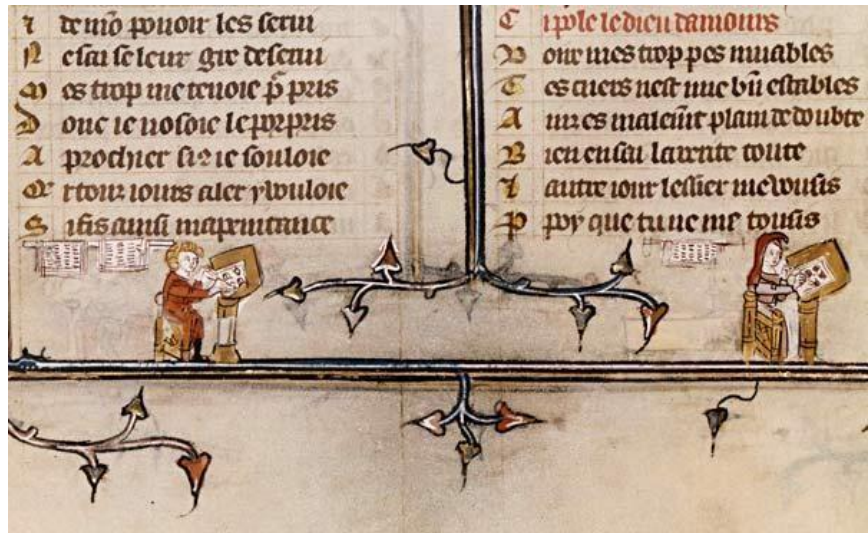 de mõ pouoir les serui
Ne sai se leur gre deserui
Mes trop me tenoie p̃ pris
Donc ie nosoie le porpris
Aprochier si ie souloie
touz iours aler y vouloie
Si fis ainsi ma penitance
Ci pole le dieu damours
trop pes muables
Tes cuers nest mie bñ estables
Ains es malemt̃ plain de doubte
Bien en sai la verite toute
Lautre iour lessier me vousis
P poy que tu ne me tousis